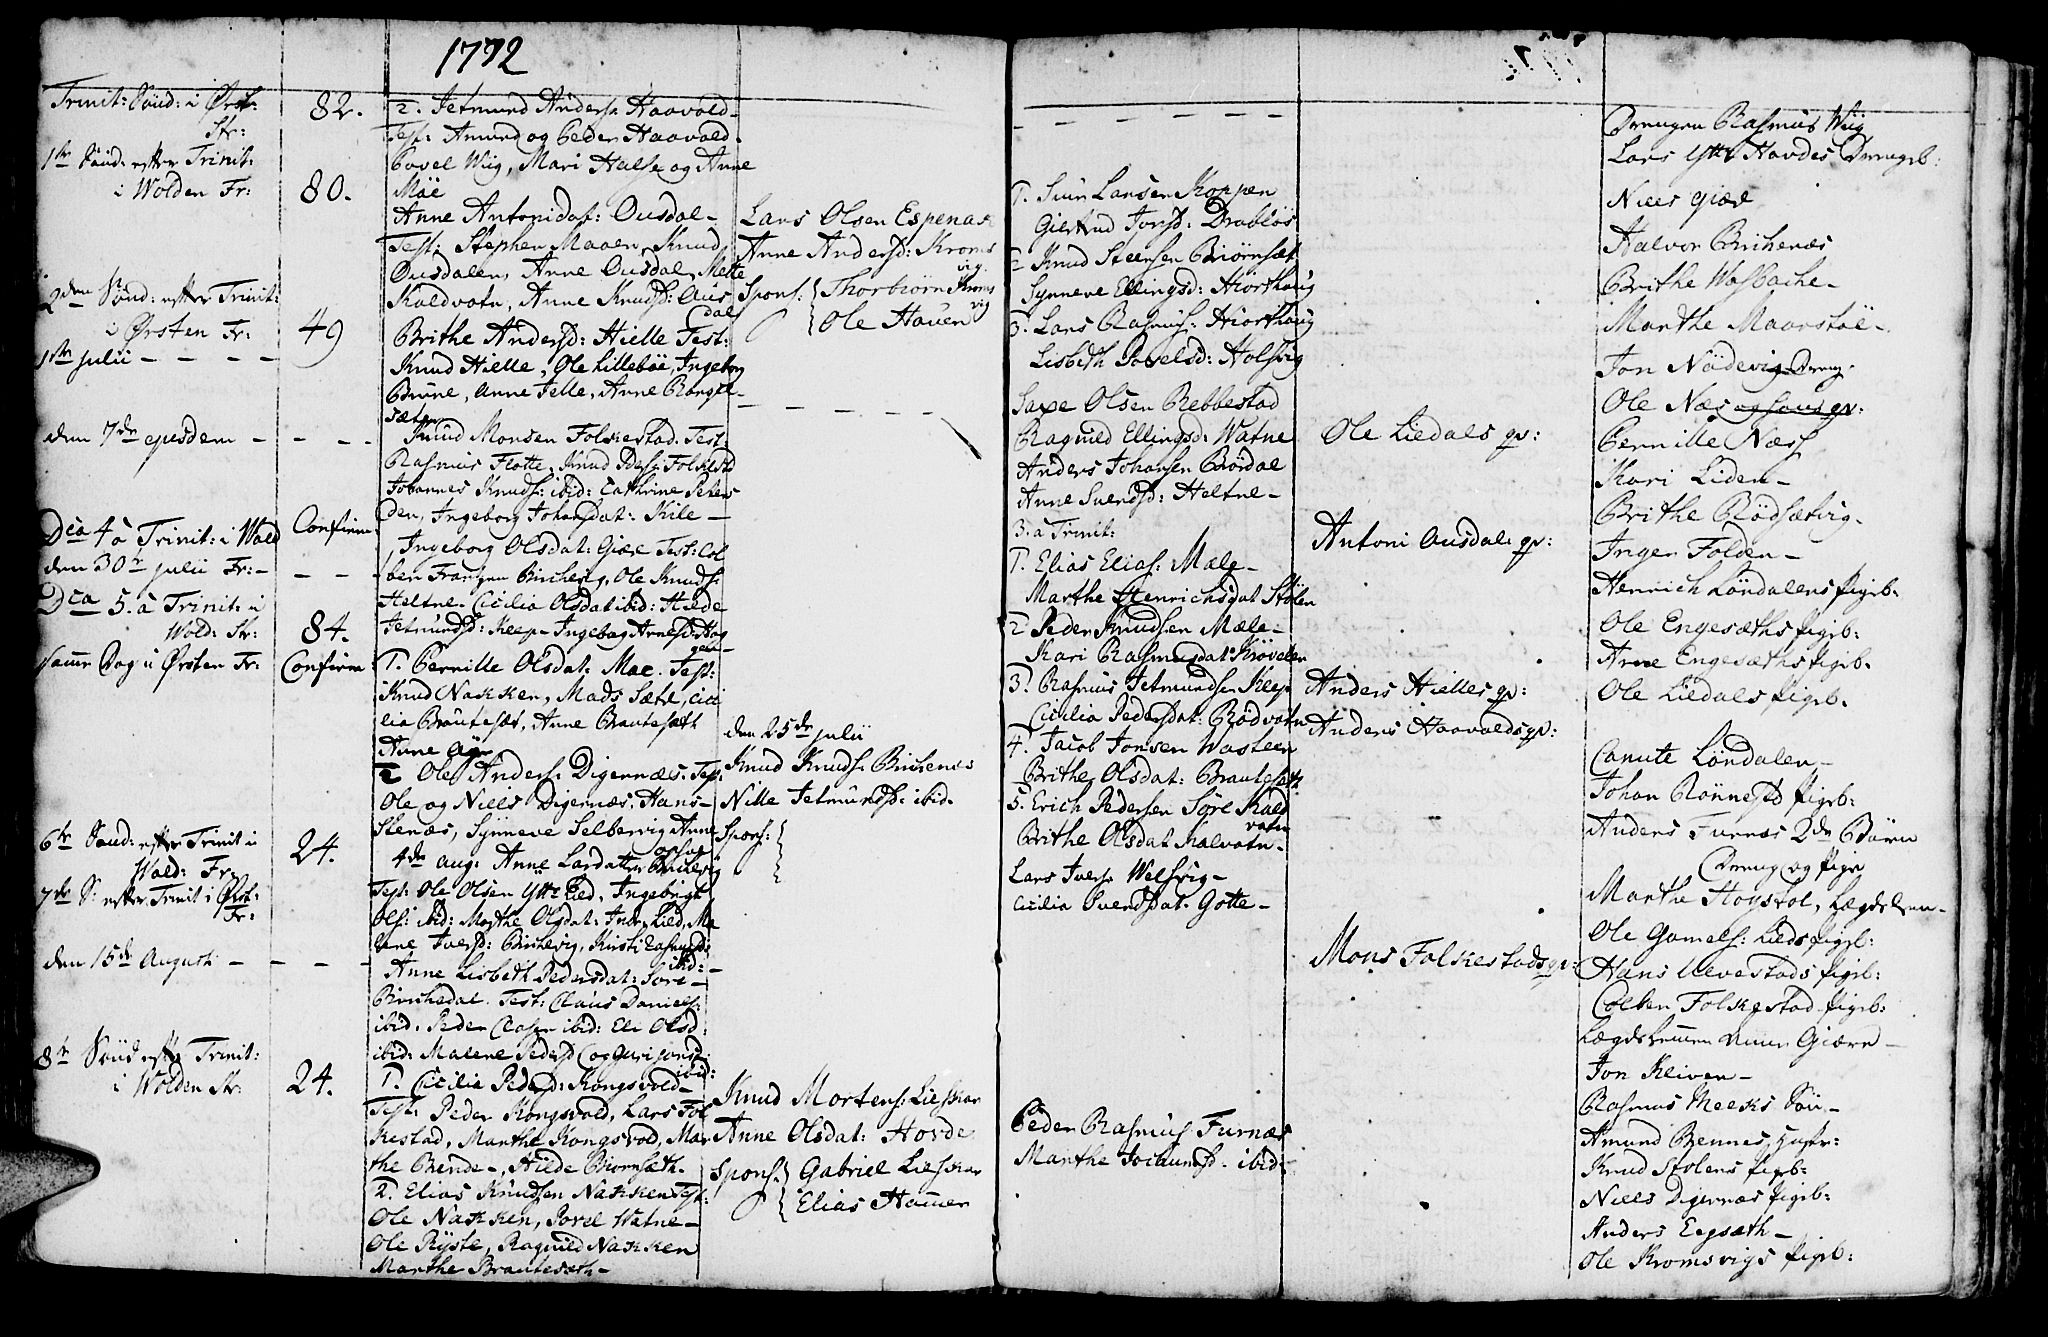 1772
Trinit: Sönd: i Ørst:
Str:
1ste Sönd: efter Trinit:
i Wolden Fr:
2den Sönd: efter Trinit:
i Ørsten Fr:
1ste Julii - - - -
den 7de ejusdem - - - -
Dca 4 à Trinit: i Wold
den 30te Julii Fr: - - - -
Dca 5. à Trinit: i
Wold: Str:
samme Dag i Ørsten Fr:
6te Sönd: efter Trinit i
Wold: Fr:
7de S: efter Trinit i Ørst:
Fr:
den 15de August - - - - -
8te Sönd efter Trinit:
i Wolden Str:
82.
80.
49
Confirm
84.
Confirm:
24.
24.
2. Jetmund Anders: Haavold -
Test: Amund og Peder Haavold.
Povel Wiig, Mari Halse og Anne
Möe
Anne Antonidat: Ousdal -
Test: Stephen Maaen, Knud
Ousdalen, Anne Ousdal, Mette
Kaldvatn, Anne Knudsd: Aus
dal
Brithe Andersd: Hielle Test:
Knud Hielle, Ole Lilleböe, Ingebor
Brune, Anne Jelle, Anne Rangel-
sæter
Knud Monsen Folkestad. Test:
Rasmus Flotte, Knud Folkestd
Johannes Knuds: ibid: Cathrine
Ingeborg Johansdat: Kile -
Ingeborg Olsdat: Giæe Test: Col
ben Franzen Birchevig, Ole Knuds:
Heltne. Cicilia Olsdat ibid: Hilde
Jetmundsd: Keep - Ingebor Arnesd: Hag
1. Pernille Olsdat: Moe. Test:
Knud Nakken, Mads Sætre, Cici
lia Brautesæt, Anne Brautesæth
Anne Aam
2 Ole Anders: Digernæs. Test:
Ole og Niels Digernæs, Hans -
Stenæs, Synneve Selbervig Anne
4de Aug: Anne Larsdatter Birchevig
Test: Ole Olsen Ytte Lied, Ingebrigt
Ols: ibid: Marthe Olsdat: Indre Lied, Ma
rene Ivers: Birchevig, Kirsti Rasmusd:
ibid: -
Anne Lisbeth Pedersdat: Söre -
Birchedal. Test: Claus Daniels:
ibid. Peder Clasen ibid: Eli Olsd:
ibid: Malene Pedersd og Guri Jonsd:
ibid:
1. Cicilie Pedersd: Kongsvold -
Test: Peder Kongsvold, Lars Fol
kestad, Marthe Kongsvold, Mar
the Bende -, Hilde Biornsæth.
2. Elias Knudsen Nakken Test:
Ole Nakken, Povel Watne -
Ole Ryste, Ragnild Nakken
Marthe Brautesæth -
Lars Olsen Espenak
Anne Andersd: Kroms
vig.
Spons: { Thorbiörn Kroms
vig
Ole Hauen
- - - - - -
den 25de Julii
Knud Knuds: Birkenes
Nille Jetmundsd: ibid.
Spons: {
Knud Mortens: Lieskar
Anne Olsdat: Hovde
Spons: { Gabriel Lieskar
Elias Hauen
- - - - - -
1. Siur Larsen Koppen
Giertrud Jonsd: Drablös
2 Knud Steensen Biörnsæt
Synneve Ellingsd: Hiorthoug
3. Lars Rasmus: Hiorthoug
Lisbeth Povelsd: Holsvig
Saxe Olsen Rebbestad
Ragnild Ellingsd: Watne
Anders Johansen Bördal
Anne Svendsd: Heltne -
3. à Trinit:
1. Elias Elias: Mæle -
Marthe Henrichsdat Stölen
2 Peder Knudsen Mæle -
Kari Rasmusdat: Krövelen
3. Rasmus Jetmundsen Keep
Cicilia Pedersdat: Rödvatn
4. Jacob Jonsen Wasteen
Brithe Olsdat: Brautesæth
5. Erich Pedersen Söre Kald
vatn
Brithe Olsdat Kalvatn -
Lars Ivers: Welsvig -
Cicilia Svendsdat. Gotte -
Peder Rasmus: Furnæs
Marthe Jochumsd. ibid: -
Ole Liedals qv:
Antoni Ausdals qv:
Anders Hielles qv:
Anders Haavolds qv:
Mons Folkestads qv:
Drengen Rasmus Wiig
Lars Ytte Havdes Drengeb:
Niels Giæe
Halvor Birkenæs
Brithe Wasbache -
Marthe Maarstöl -
Jon Nödevig Dreng.
Ole Næs og hans qv:
Pernille Næss
Kari Liden -
Brithe Rödsætvig -
Inger Folden -
Henrich Löndalens Pigeb -
Ole Engesæths Pigeb:
Arne Engesæths Pigeb.
Ole Liedals Pigeb.
Canute Löndalen -
Johan Rönnestd Pigeb:
Anders Furnæs 2de Börn
Dreng og Pige
Marthe Hoystol, Lægdslem -
Ole Gamels: Lieds Pigeb:
Hans Uevestads Pigeb:
Colben Folkestad Pigeb:
Lægdslemmen Giære -
Jon Kliven -
Rasmus Meeks Sön -
Amund Bennes, Hustr:
Knud Stolens Pigeb:
Niels Digernæs Pigeb:
Anders Eegsæth -
Ole Kromsvigs Pigeb: